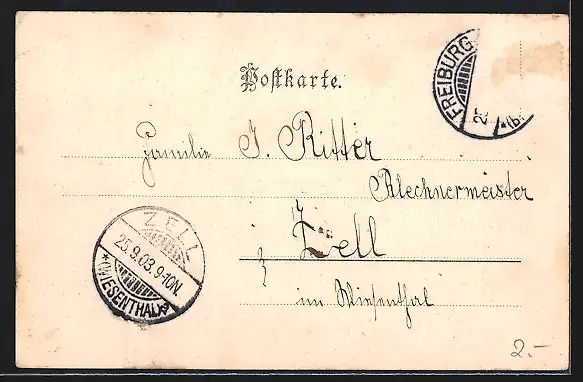 Postkarte.
FREIBURG
25
*(b.
Familie J. Ritter
Blechnermeister
Zell
im Wiesenthal
ZELL
25.9.03.9-10N.
*(WIESENTHAL)*
2.-